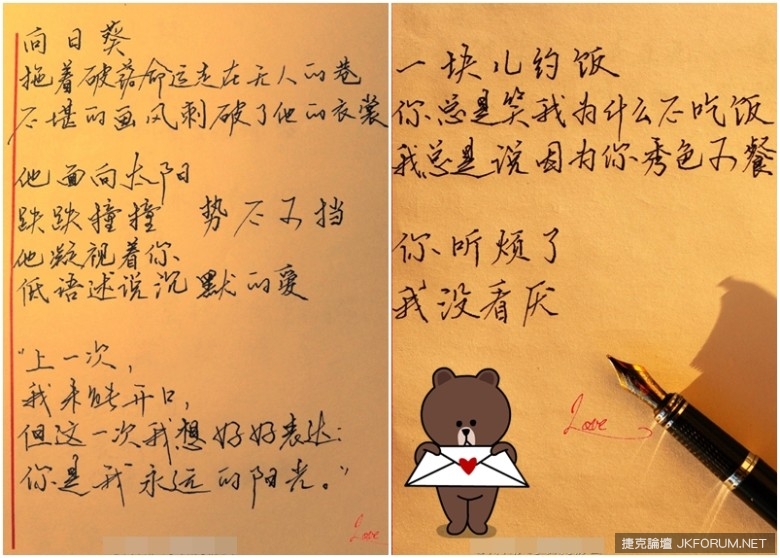 向日葵
拖着破落命运走在无人的巷
不堪的画风刺破了他的衣裳
他面向太阳
跌跌撞撞 势不可挡
他凝视着你
低语述说沉默的爱
“上一次，
我未能开口，
但这一次我想好好表达：
你是我永远的阳光。”
Love
一块儿约饭
你总是笑我为什么不吃饭
我总是说因为你秀色可餐
你听烦了
我没看厌
Love
捷克論壇 JKFORUM.NET